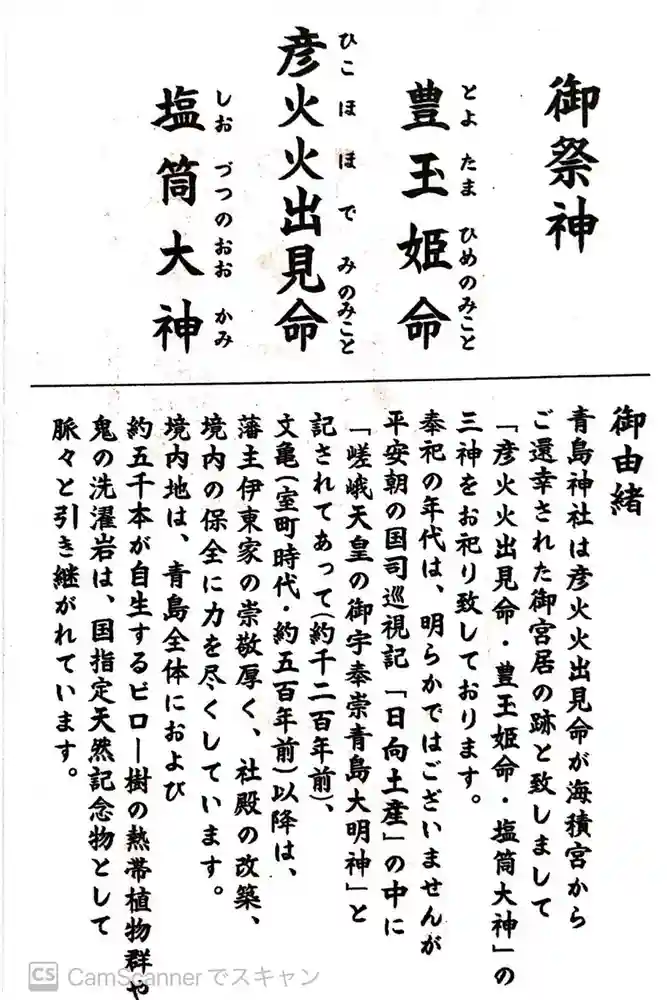 御祭神
豊玉姫命
とよたまひめのみこと
彦火火出見命
ひこほほでみのみこと
塩筒大神
しおづつのおおかみ
御由緒
青島神社は彦火火出見命が海積宮から
ご還幸された御宮居の跡と致しまして
「彦火火出見命・豊玉姫命・塩筒大神」の
三神をお祀り致しております。
奉祀の年代は、明らかではございませんが
平安朝の国司巡視記「日向土産」の中に
「嵯峨天皇の御宇奉崇青島大明神」と
記されてあって(約千二百年前)、
文亀(室町時代・約五百年前)以降は、
藩主伊東家の崇敬厚く、社殿の改築、
境内の保全に力を尽くしています。
境内地は、青島全体におよび
約五千本が自生するビロー樹の熱帯植物群や
鬼の洗濯岩は、国指定天然記念物として
脈々と引き継がれています。
CS CamScannerでスキャン